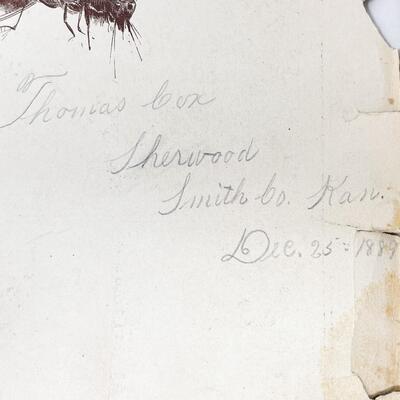 Thomas Cox
Sherwood
Smith Co. Kan.
Dec. 25 - 1889